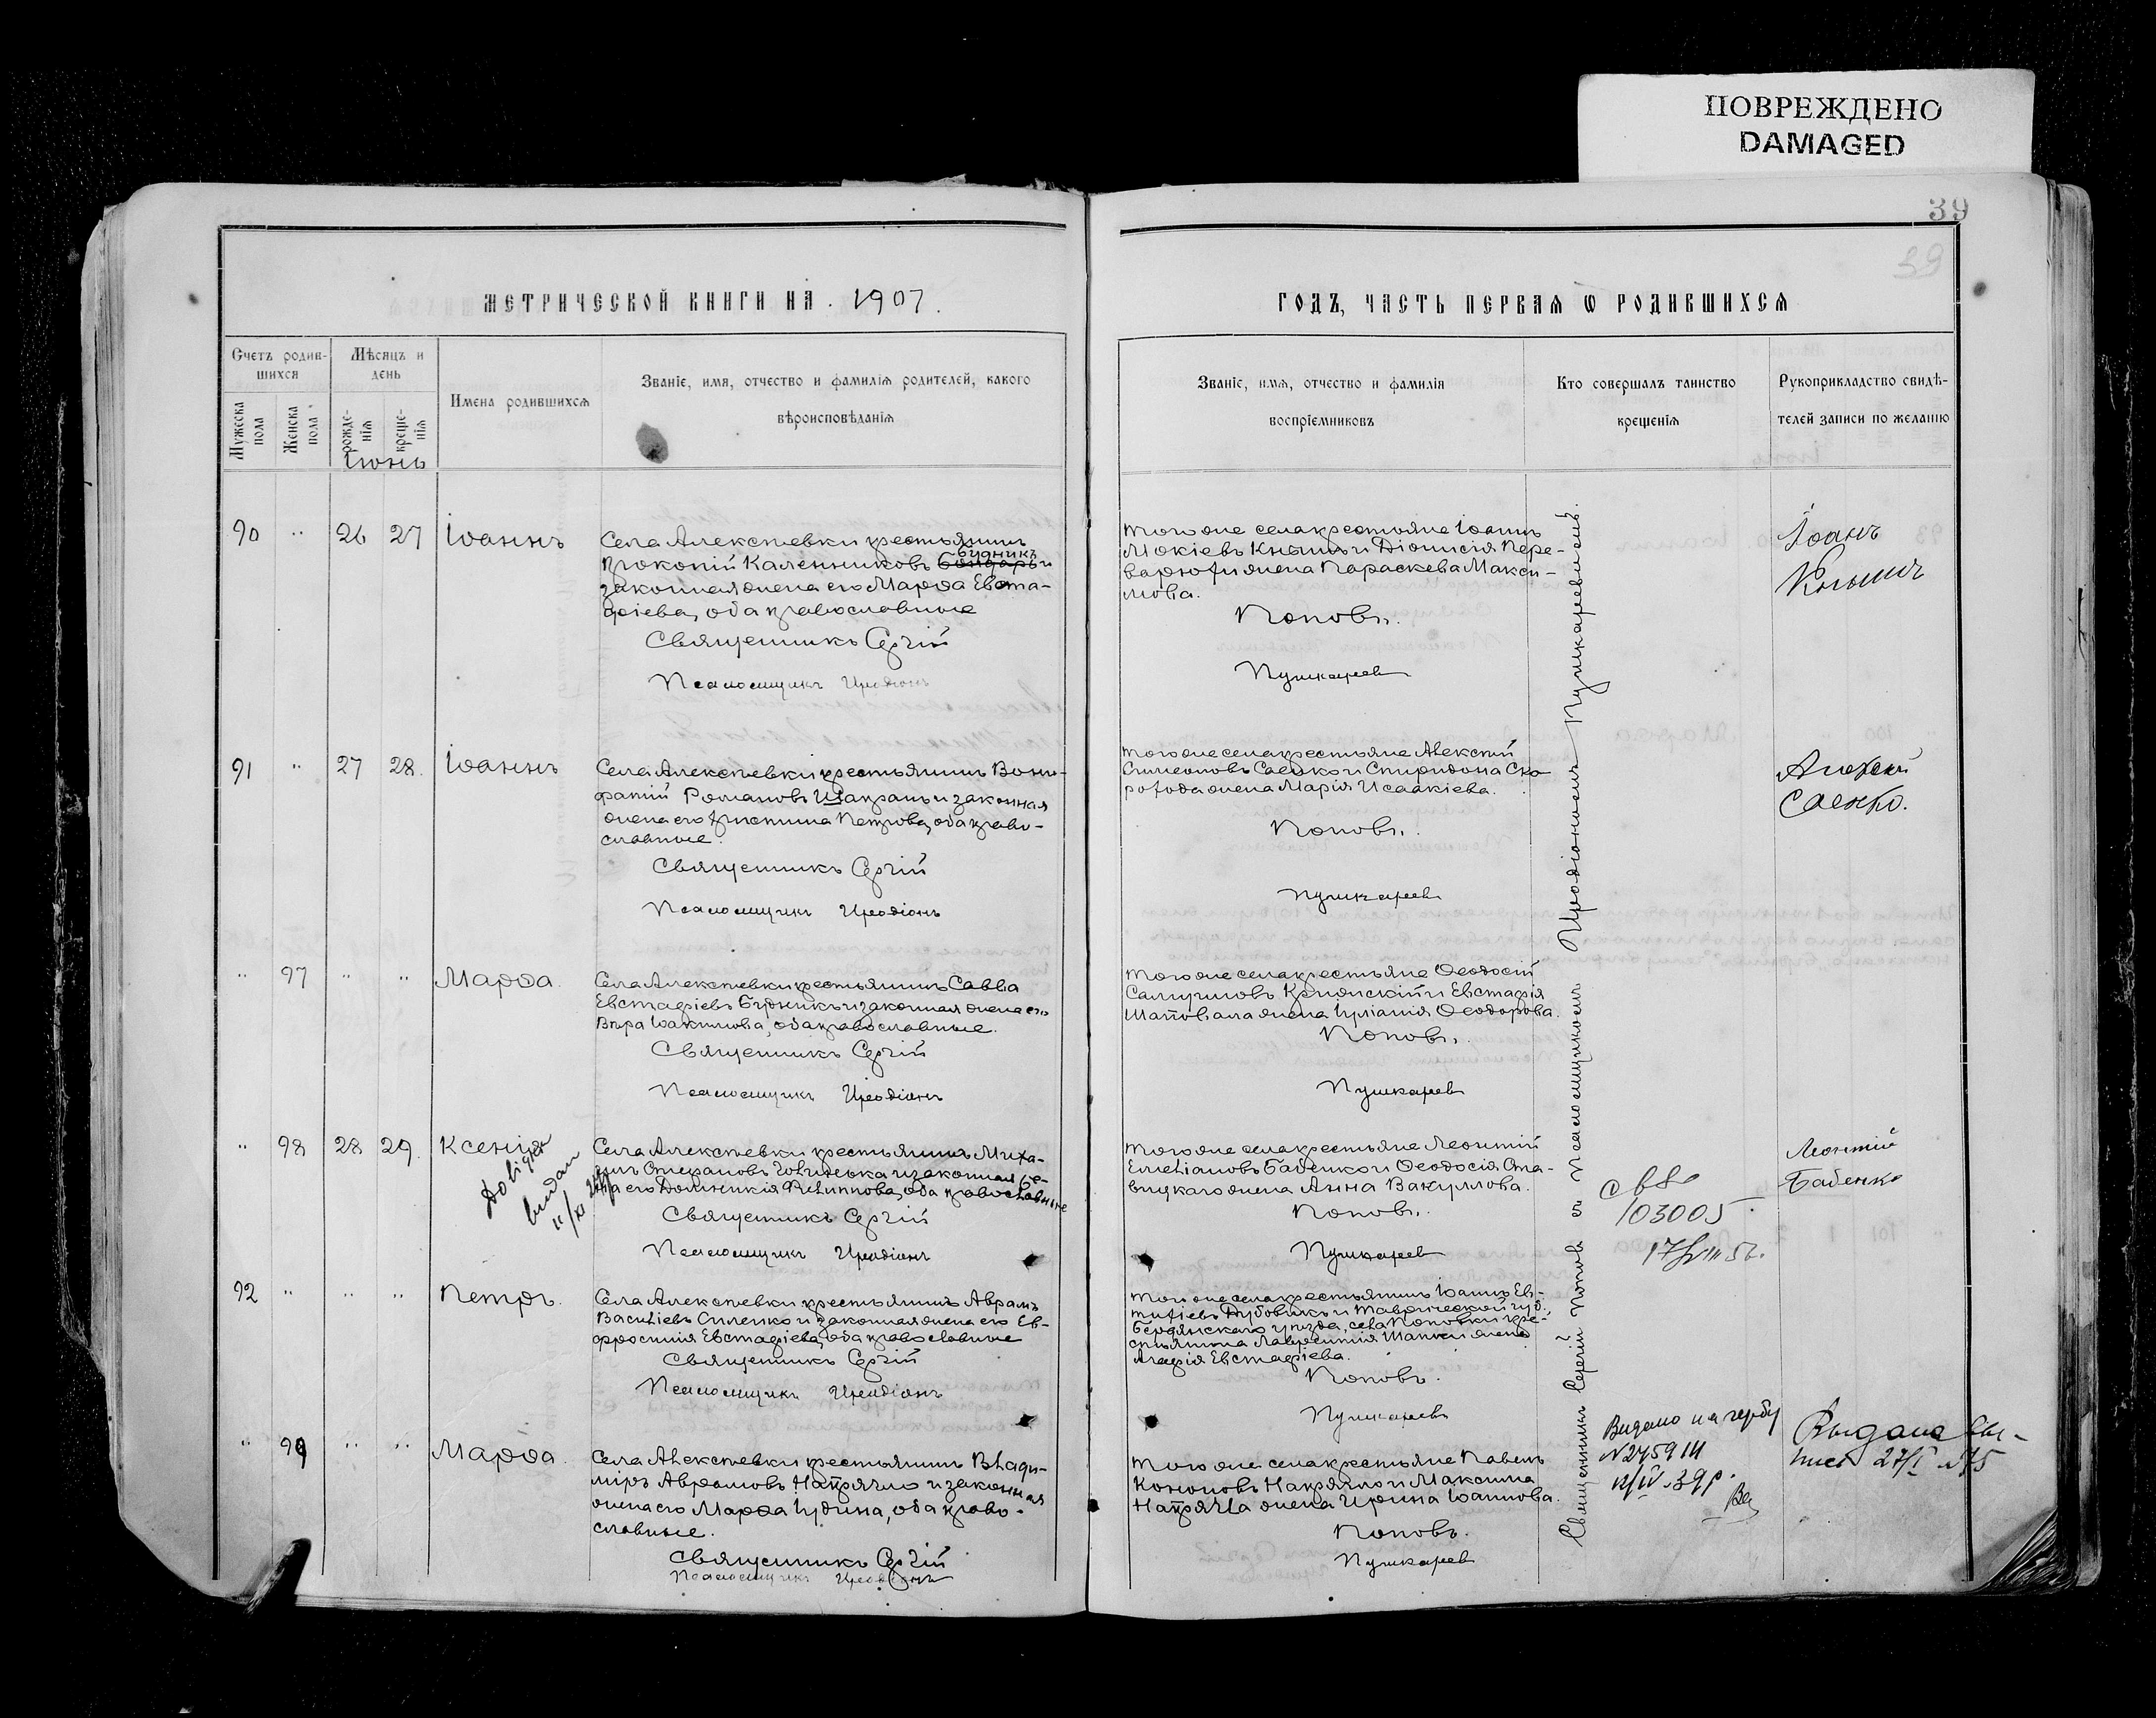 ПОВРЕЖДЕНО
DAMAGED
39
39
МЕТРИЧЕСКОЙ КНИГИ НА 1907.
ГОДЪ, ЧАСТЬ ПЕРВАЯ Ѡ РОДИВШИХСЯ
Счетъ родив-
шихся
Мѣсяцъ и
день
Мужеска
пола
Женска
пола
рожде-
нія
креще-
нія
Имена родившихся
Званіе, имя, отчество и фамилія родителей, какого
вѣроисповѣданія
Званіе, имя, отчество и фамилія
воспріемниковъ
Кто совершалъ таинство
крещенія
Рукоприкладство свидѣ-
телей записи по желанію
Іюнь
90 " 26 27 Іоаннъ
Села Алексѣевки крестьянинъ
Будникъ
Прокопій Калинниковъ Бондарь и
законная жена его Марѳа Евста-
фіева, оба православные
Священникъ Сергій
Псаломщикъ Иродіонъ
Того же села крестьяне Іоаннъ
Мокіевъ Кнышъ и Діонисія Пере-
варюхи жена Параскева Макси-
мова.
Поповъ.
Пушкаревъ
Іоанъ
Кнышъ
91 " 27 28. Іоаннъ
Села Алексѣевки крестьянинъ Вони-
фатій Романовъ Шапранъ и законная
жена его Христина Петрова, оба право-
славные.
Священникъ Сергій
Псаломщикъ Иродіонъ
Того же села крестьяне Алексѣй
Симеоновъ Саенко и Спиридона Ско-
рохода жена Марія Исаакіева.
Поповъ.
Пушкаревъ
Алексей
Саенко.
" 97 " " Марѳа.
Села Алексѣевки крестьянинъ Савва
Евстафіевъ Будникъ и законная жена его
Вѣра Іоакимова, оба православные.
Священникъ Сергій
Псаломщикъ Иродіонъ
Того же села крестьяне Ѳеодосій
Самуиловъ и Евстафія
Шаповала жена Іуліанія Ѳеодорова.
Поповъ.
Пушкаревъ
" 98 28 29. Ксенія
Довідки
видан
11/XI
Села Алексѣевки крестьянинъ Миха-
илъ Стефановъ и законная же-
на его Домникія Филиппова, оба православные
Священникъ Сергій
Псаломщикъ Иродіонъ
Того же села крестьяне Леонтій
Емеліановъ Бабенко и Ѳеодосія Ста-
вицкаго жена Анна Вакулова.
Поповъ.
Пушкаревъ
103005
Леонтій
Бабенко
92 " " " Петръ.
Села Алексѣевки крестьянинъ Аврамъ
Василіевъ Силенко и законная жена его Ев-
фросинія Евстафіева, оба православные
Священникъ Сергій
Псаломщикъ Иродіонъ
Того же села крестьянинъ Іоаннъ Ев-
тихіевъ Дубовикъ и Таврической губ.,
Бердянскаго уѣзда, села Поповки кре-
стьянина Лаврентія жена
Агафія Евстафіева.
Поповъ.
Пушкаревъ
" 99 " " Марѳа.
Села Алексѣевки крестьянинъ Влади-
міръ Аврамовъ Напрягло и законная
жена его Марѳа Іудина, оба право-
славные.
Священникъ Сергій
Псаломщикъ Иродіонъ
Того же села крестьяне Павелъ
Кононовъ Напрягло и Максима
Напрягла жена Ирина Іоаннова.
Поповъ.
Пушкаревъ
Священникъ Сергій Поповъ съ псаломщикомъ Иродіономъ Пушкаревымъ.